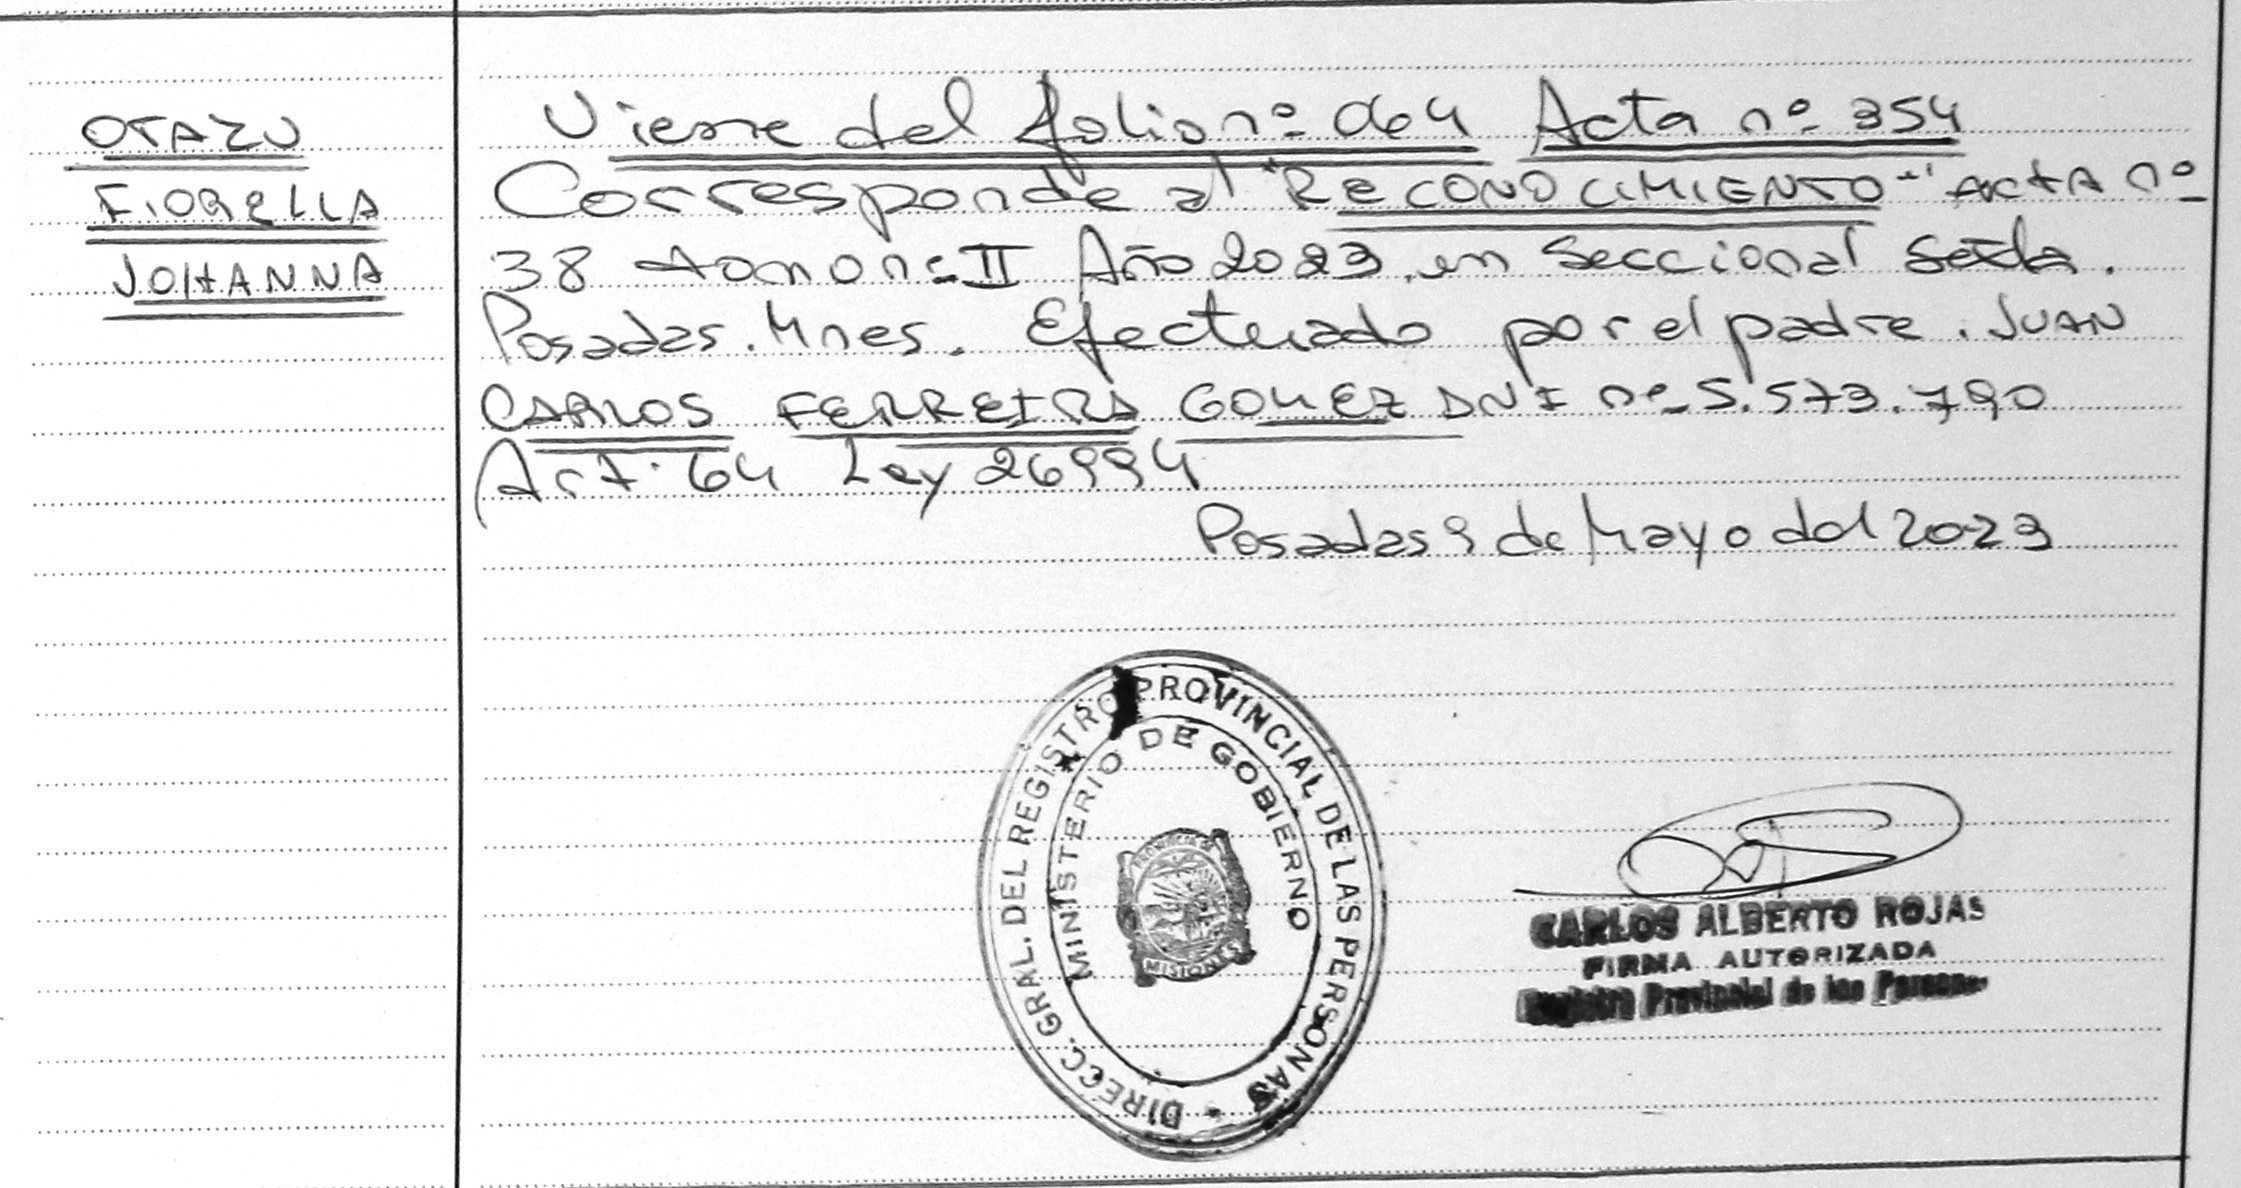 OTAZU
FIORELLA
JOHANNA
Viene del folio nº 064 Acta nº 354
Corresponde al "RECONOCIMIENTO" ACTA nº
38 tomo nº II Año 2023, en Seccional Sexta.
Posadas. Mnes. Efectuado por el padre. JUAN
CARLOS FERREIRA GOMEZ DNI nº 5.573.790
Art. 64 Ley 26994
Posadas 9 de Mayo del 2023
DIRECC. GRAL. DEL REGISTRO PROVINCIAL DE LAS PERSONAS
MINISTERIO DE GOBIERNO
PROVINCIA DE
MISIONES
CARLOS ALBERTO ROJAS
FIRMA AUTORIZADA
Registro Provincial de las Personas